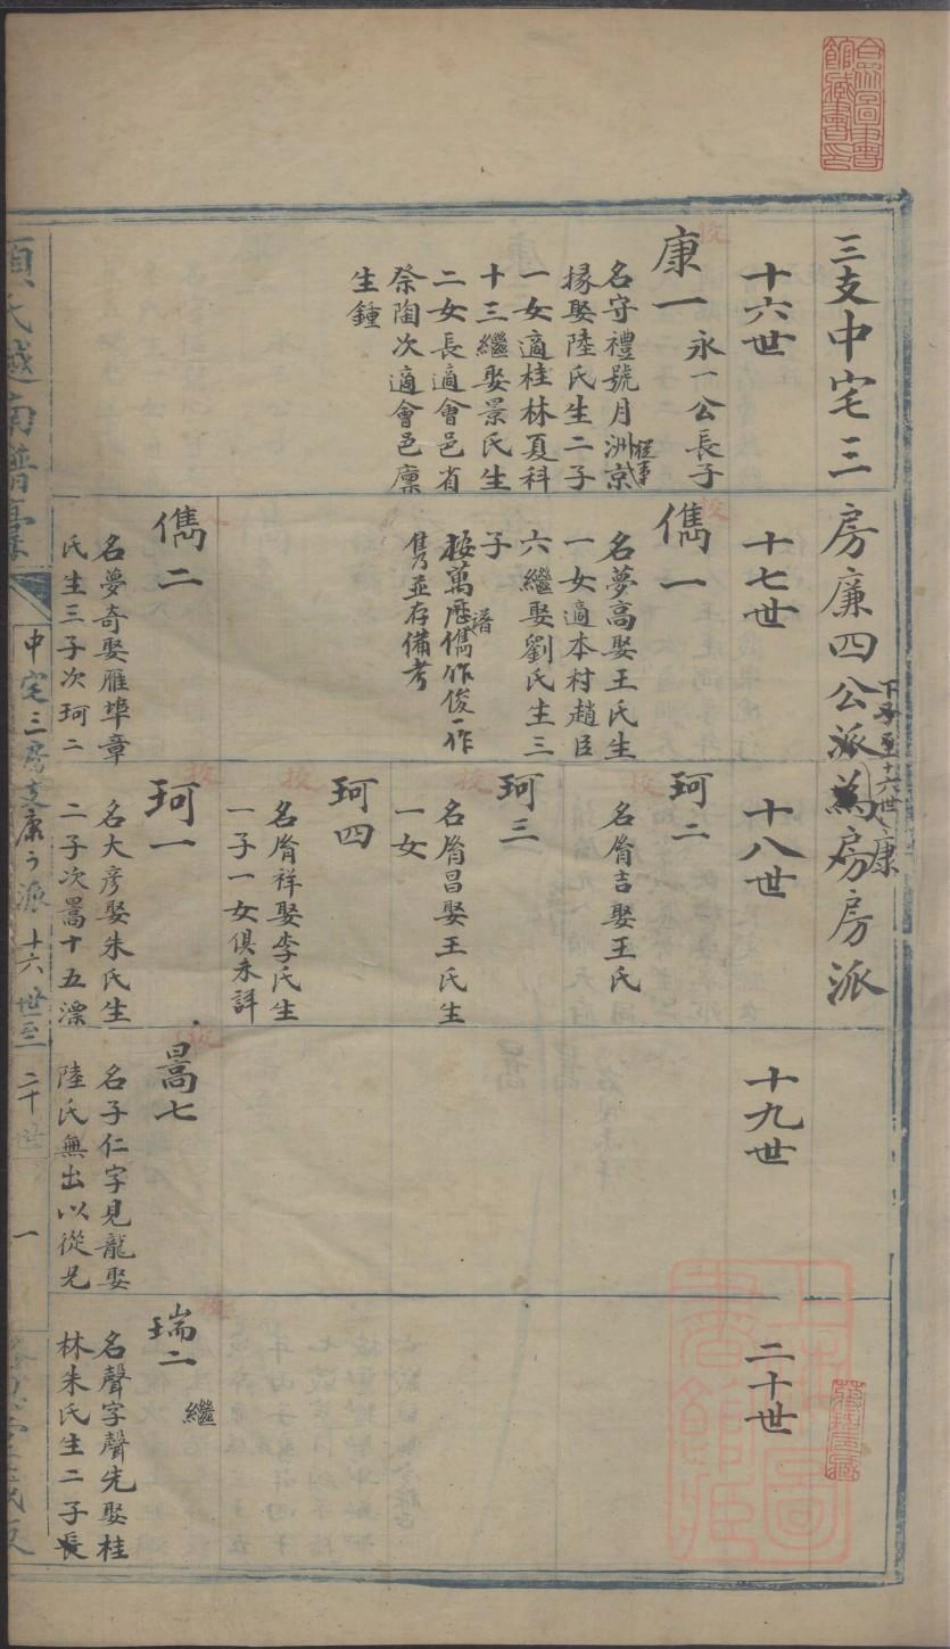 三支中宅三房廉四公派為房房派
康
十六世
十七世
十八世
十九世
二十世
康一
永一公長子
名守禮號月洲京
掾娶陸氏生二子
一女適桂林夏科
十三繼娶景氏生
二女長適會邑省
祭陶次適會邑廩
生鍾
儁一
名夢高娶王氏生
一女適本村趙臣
六繼娶劉氏生三
子
按萬歷譜儁作俊一作
雋並存備考
珂二
名脩吉娶王氏
珂三
名脩昌娶王氏生
一女
珂四
名脩祥娶李氏生
一子一女俱未詳
儁二
名夢奇娶雁埠章
氏生三子次珂二
珂一
名大彥娶朱氏生
二子次暠十五漂
暠七
名子仁字見龍娶
陸氏無出以從兄
瑞二
繼
名聲字聲先娶桂
林朱氏生二子長
中宅三房支康一派 十六世至二十世 一